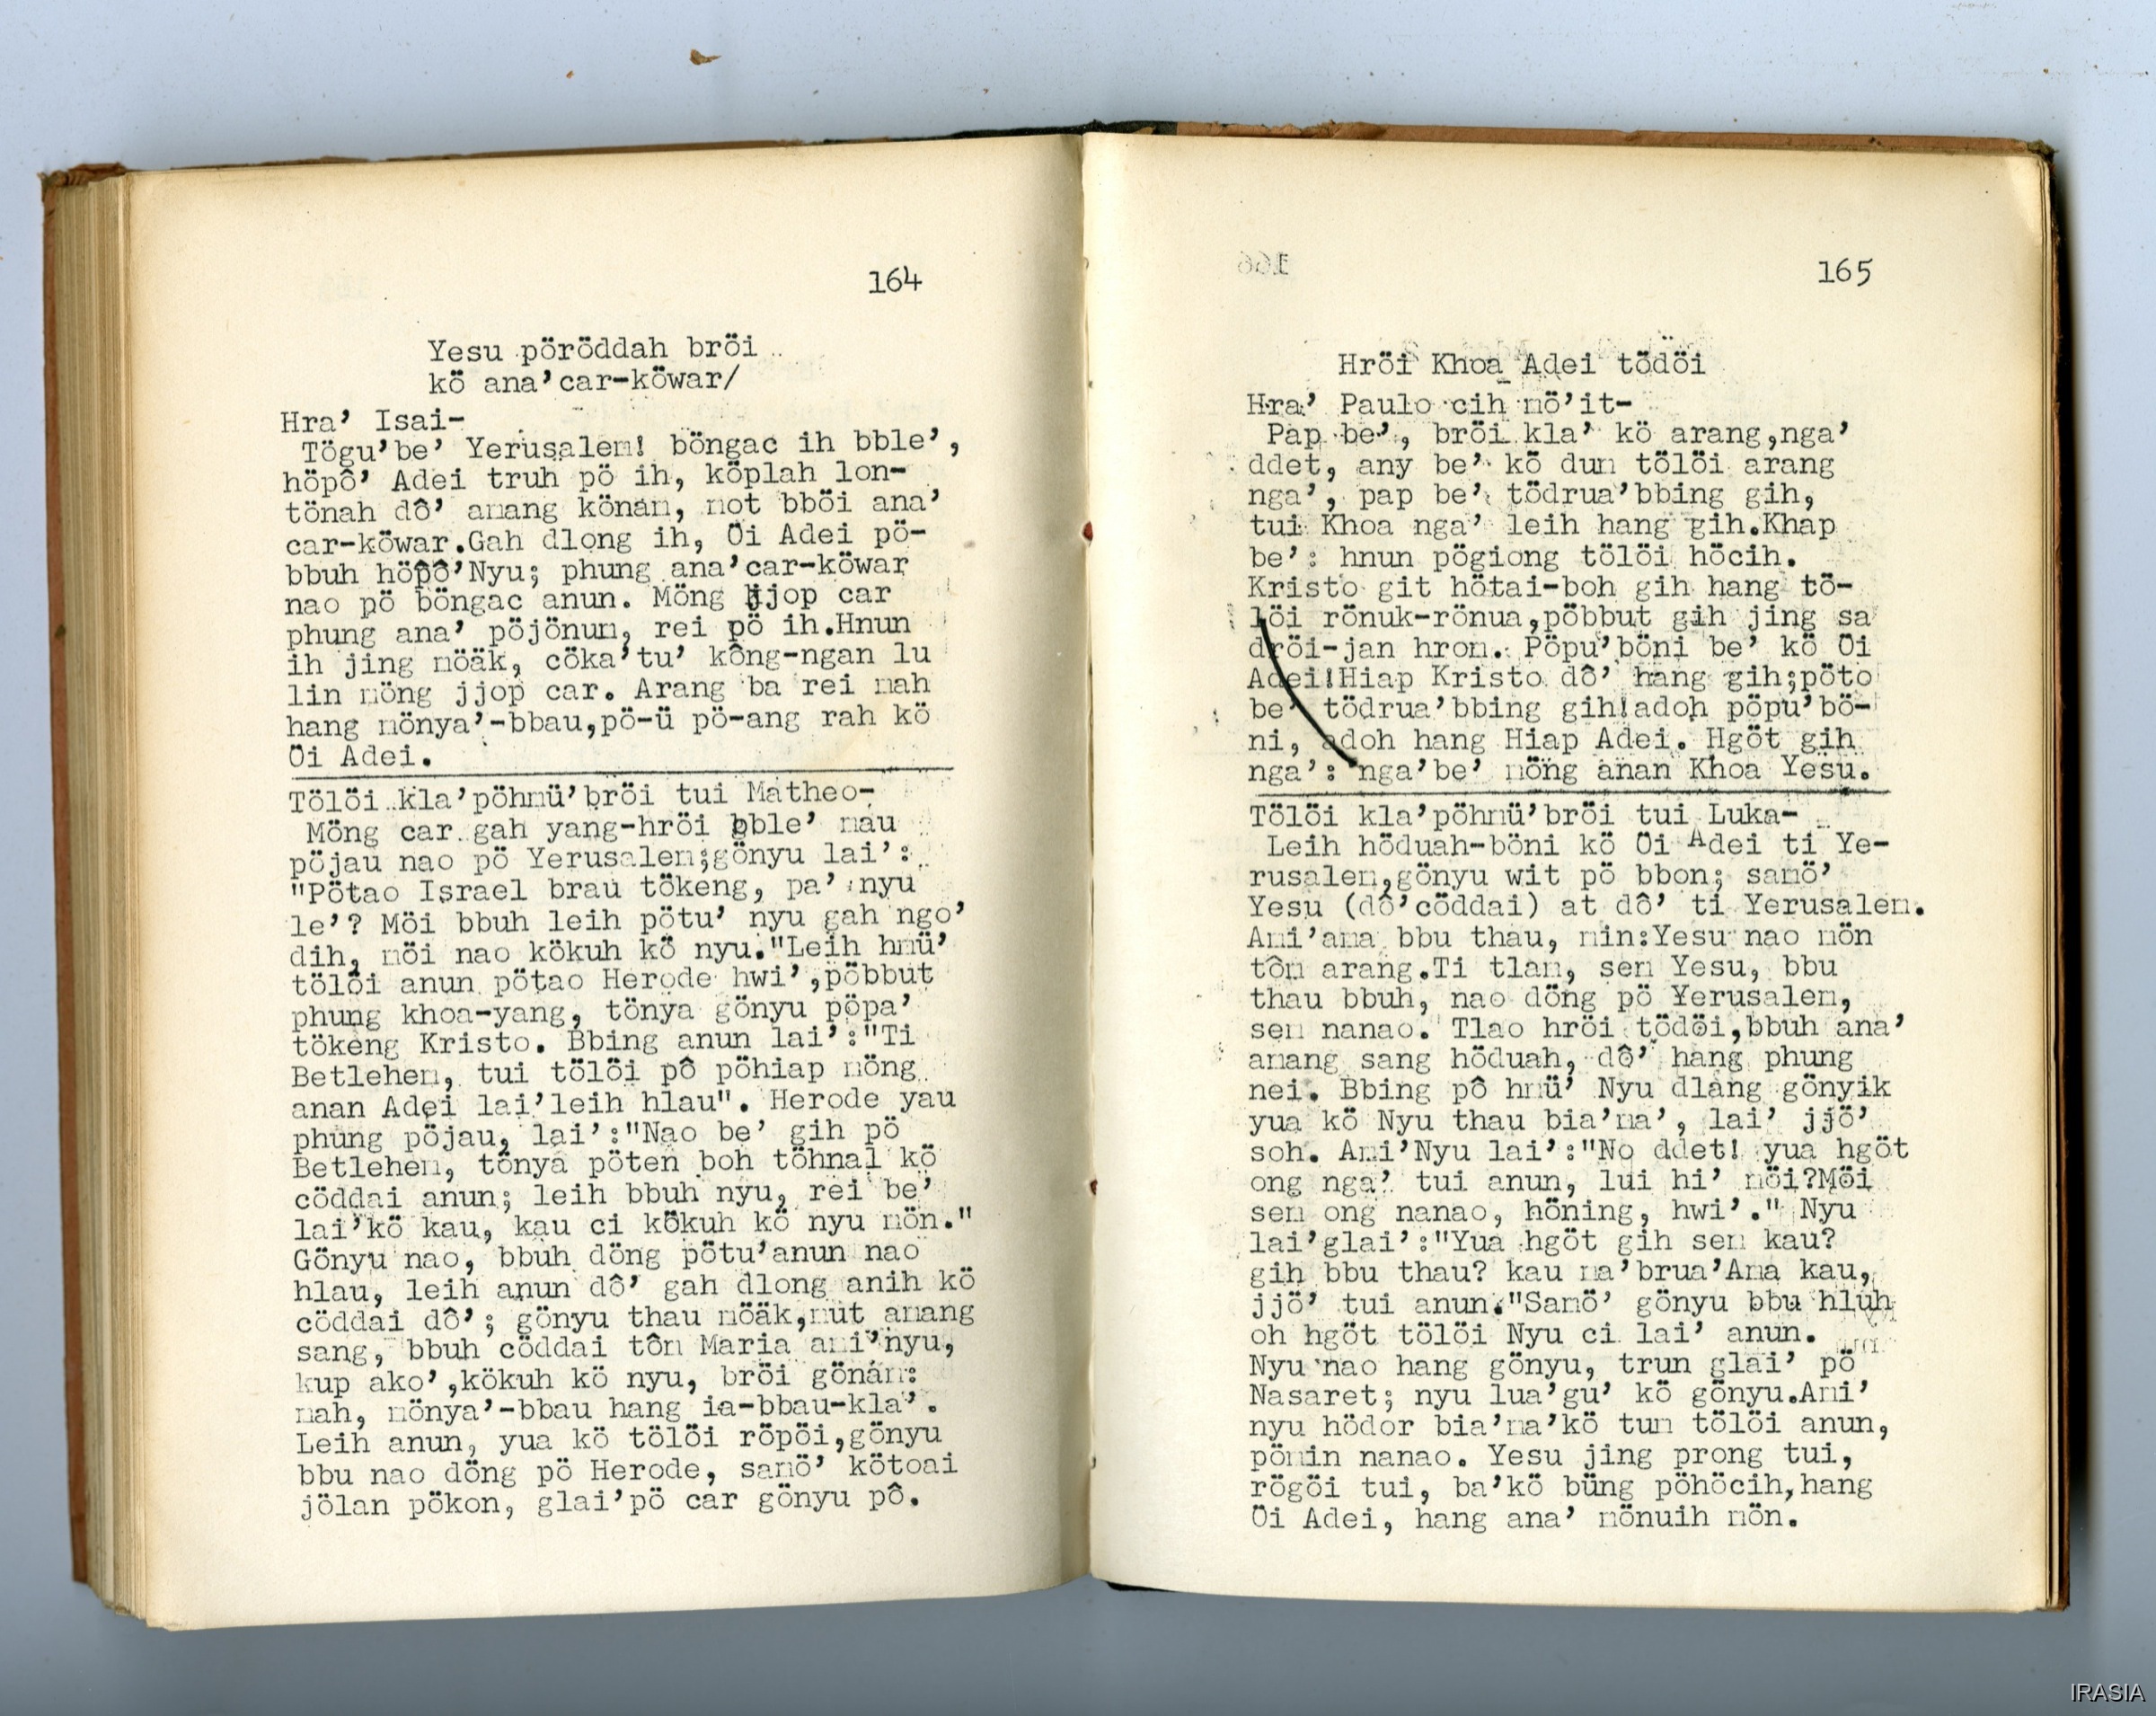 164
Yesu pöröddah bröi
kö ana’car-köwar/
Hra’ Isai-
Tögu’be’ Yerusalem! böngac ih bble’,
höpô’ Adei truh pö ih, köplah lon-
tönah dô’ amang könam, mot bböi ana’
car-köwar.Gah dlong ih, Öi Adei pö-
bbuh höpô’Nyu; phung ana’car-köwar
nao pö böngac anun. Möng jjop car
phung ana’ pöjönum, rei pö ih.Hnun
ih jing möäk, cöka’tu’ kông-ngan lu
lin möng jjop car. Arang ba rei mah
hang mönya’-bbau,pö-ü pö-ang rah kö
Öi Adei.
Tölöi kla’pöhmü’bröi tui Matheo-
Möng car gah yang-hröi bble’ mau
pöjau nao pö Yerusalem;gönyu lai’:
"Pötao Israel brau tökeng, pa’ nyu
le’? Möi bbuh leih pötu’ nyu gah ngo’
dih, möi nao kökuh kö nyu."Leih hmü’
tölöi anun pötao Herode hwi’,pöbbut
phung khoa-yang, tönya gönyu pöpa’
tökeng Kristo. Bbing anun lai’:"Ti
Betlehem, tui tölöi pô pöhiap möng
anan Adei lai’leih hlau". Herode yau
phung pöjau, lai’:"Nao be’ gih pö
Betlehem, tönya pöten boh töhnal kö
cöddai anun; leih bbuh nyu, rei be’
lai’kö kau, kau ci kökuh kö nyu mön."
Gönyu nao, bbuh döng pötu’anun nao
hlau, leih anun dô’ gah dlong anih kö
cöddai dô’; gönyu thau möäk,mut amang
sang, bbuh cöddai tôm Maria ami’nyu,
kup ako’,kökuh kö nyu, bröi gönam:
mah, mönya’-bbau hang ia-bbau-kla’.
Leih anun, yua kö tölöi röpöi,gönyu
bbu nao döng pö Herode, samö’ kötoai
jölan pökon, glai’pö car gönyu pô.
165
Hröi Khoa Adei tödöi
Hra’ Paulo cih mö’it-
Pap be’, bröi kla’ kö arang,nga’
ddet, any be’ kö dum tölöi arang
nga’, pap be’ tödrua’bbing gih,
tui Khoa nga’ leih hang gih.Khap
be’: hnun pögiong tölöi höcih.
Kristo git hötai-boh gih hang tö-
löi rönuk-rönua,pöbbut gih jing sa
dröi-jan hrom. Pöpu’böni be’ kö Öi
Adei!Hiap Kristo dô’ hang gih;pöto
be’ tödrua’bbing gih!adoh pöpu’bö-
ni, adoh hang Hiap Adei. Hgöt gih
nga’: nga’be’ möng anan Khoa Yesu.
Tölöi kla’pöhmü’bröi tui Luka-
Leih höduah-böni kö Öi Adei ti Ye-
rusalem,gönyu wit pö bbon; samö’
Yesu (dô’cöddai) at dô’ ti Yerusalem.
Ami’ama bbu thau, min:Yesu nao mön
tôm arang.Ti tlam, sem Yesu, bbu
thau bbuh, nao döng pö Yerusalem,
sem nanao. Tlao hröi tödöi,bbuh ana’
amang sang höduah, dô’ hang phung
nei. Bbing pô hmü’ Nyu dlang gönyik
yua kö Nyu thau bia’ma’, lai’ jjö’
soh. Ami’Nyu lai’:"No ddet! yua hgöt
ong nga’ tui anun, lui hi’ möi?Möi
sem ong nanao, höning, hwi’." Nyu
lai’glai’:"Yua hgöt gih sem kau?
gih bbu thau? kau ma’brua’Ama kau,
jjö’ tui anun."Samö’ gönyu bbu hluh
oh hgöt tölöi Nyu ci lai’ anun.
Nyu nao hang gönyu, trun glai’ pö
Nasaret; nyu lua’gu’ kö gönyu.Ami’
nyu hödor bia’ma’kö tum tölöi anun,
pömin nanao. Yesu jing prong tui,
rögöi tui, ba’kö büng pöhöcih,hang
Öi Adei, hang ana’ mönuih mön.